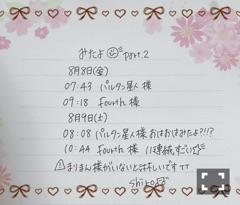 みたよ part.2
8月8日(金)
07:43 バルタン星人 様
09:18 fourth 様
8月9日(土)
08:08 バルタン星人 様 おはおはみたよ?!?
10:44 fourth 様 11連続すごい
⚠まりまん様がいないと寂しいですTT
shiro